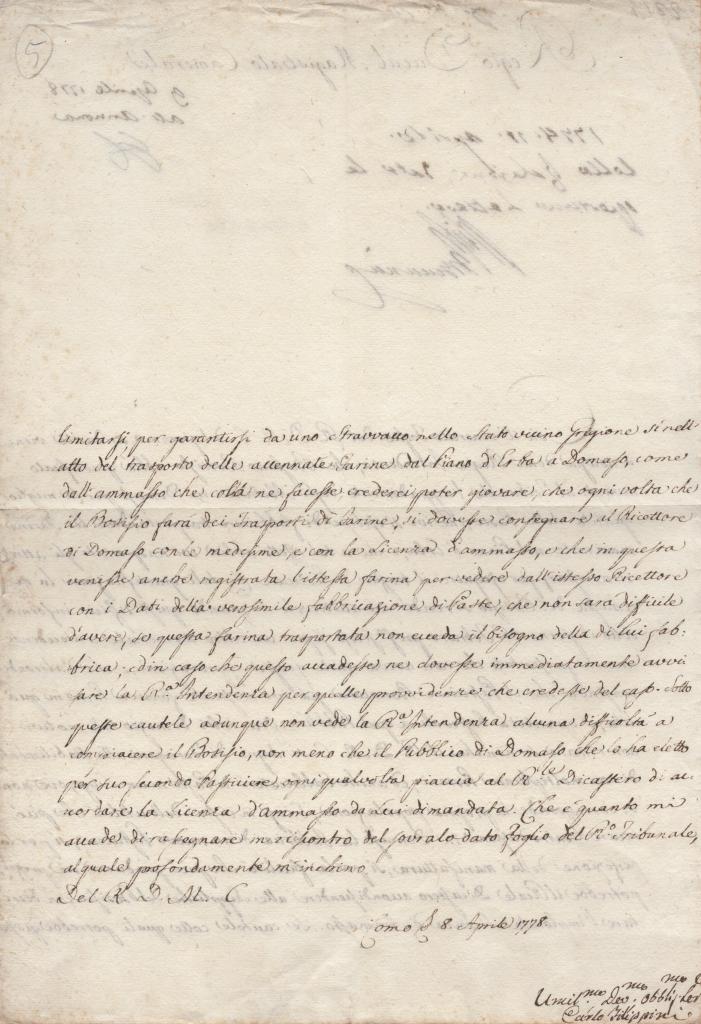 5
limitarsi per garantirsi da uno stravvaso nello Stato vicino Grigione sì nell'
atto del trasporto delle accennate Farine dal Piano d'Erba a Domaso, come
dall'ammasso che colà ne facesse crederei poter giovare, che ogni volta che
il Bosisio farà dei Trasporti di Farine, si dovesse consegnare al Ricettore
di Domaso con le medesime, e con la Licenza d'ammasso, e che in questa
venisse anche registrata l'istessa farina per vedere dall'istesso Ricettore
con i Dati della verosimile fabbricazione di Paste, che non sarà difficile
d'avere, se questa farina trasportata non ecceda il bisogno della di lui fab-
brica; ed in caso che questo accadesse ne dovesse immediatamente avvi
sare la Ra. Intendenza per quelle provvidenze che credesse del caso. Sotto
queste cautele adunque non vede la Ra. Intendenza alcuna difficoltà a
compiacere il Bosisio, non meno che il Pubblico di Domaso che lo ha eletto
per suo secondo Pasticiere, ogni qualvolta piaccia al Rle. Dicastero di ac
cordare la Licenza d'ammasso da Lui dimandata. Che è quanto mi
accade di rassegnare in riscontro del sovralodato Foglio del Ro. Tribunale,
al quale profondamente m'inchino
Del R. D. M. C
Como 8. Aprile 1778.
Umil.mo Dev.mo obblig.mo
Carlo Filippini